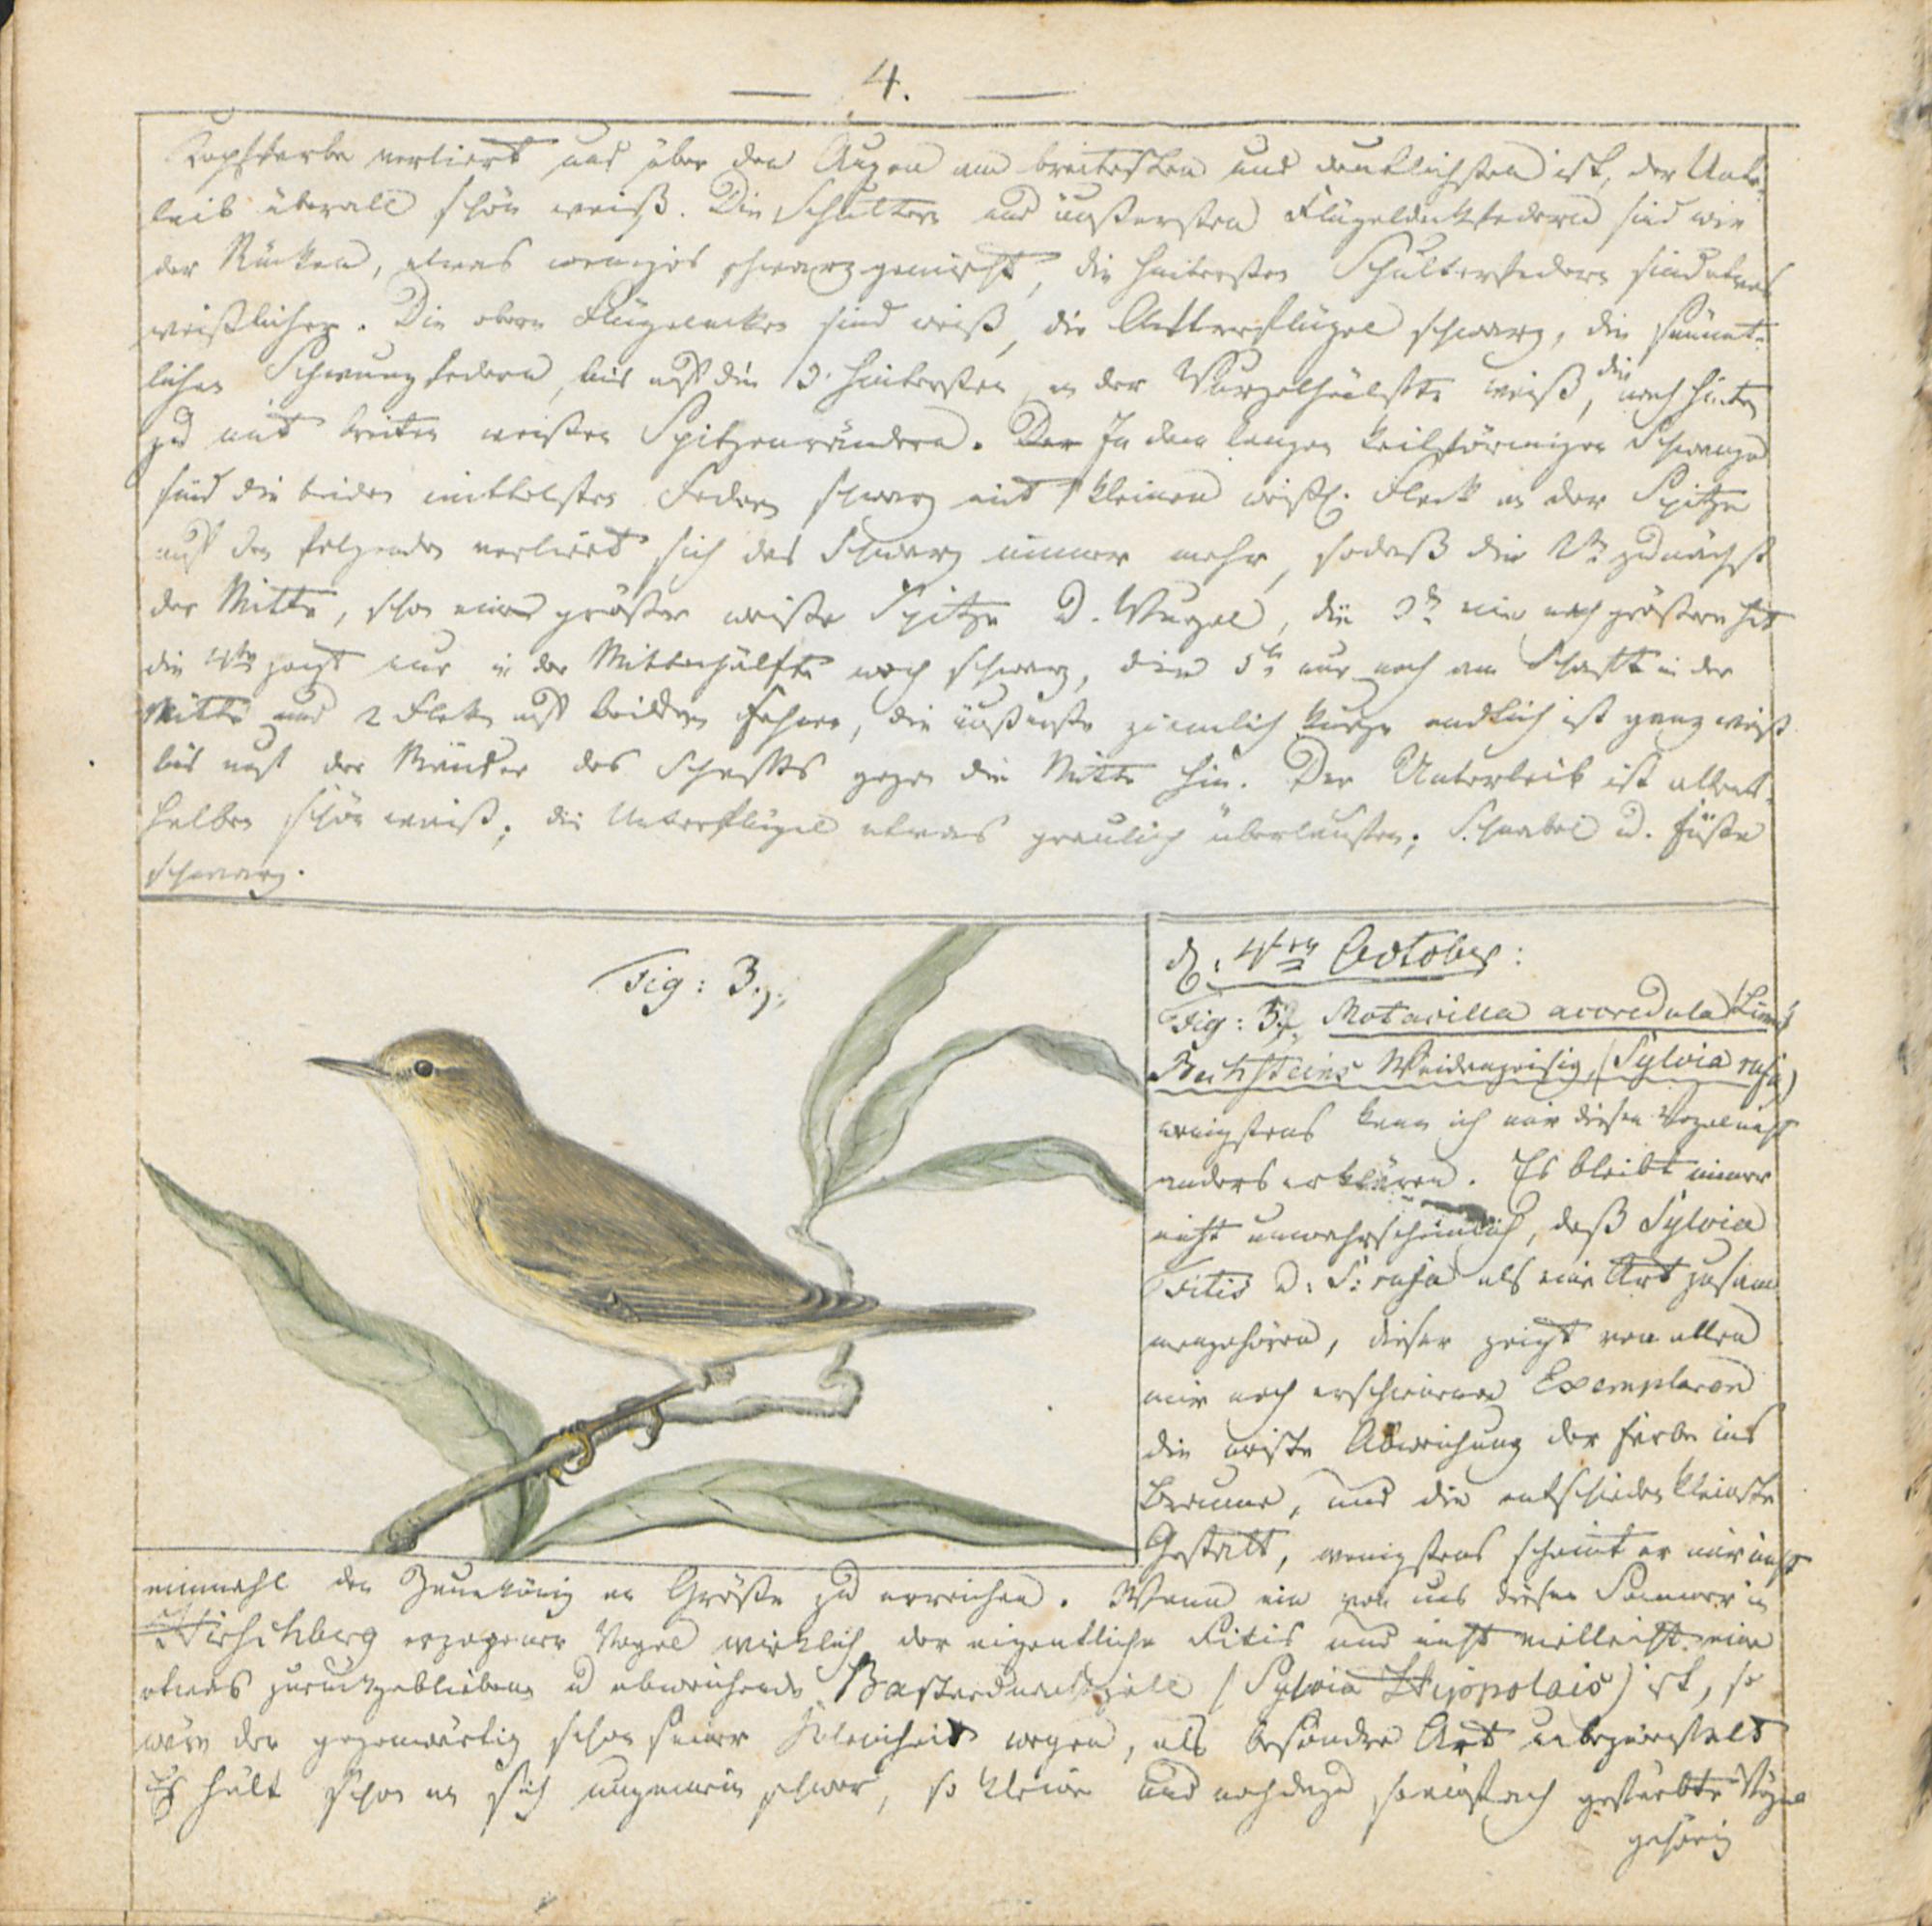 — 4. —
Kopffarbe verliert und über den Augen am breitesten und deutlichsten ist, der Unter-
leib überall schön weiß. Die Schultern und äußersten Flügeldeckfedern sind wie
der Rücken, etwas weniger schwarz gemischt, die hintersten Schulterfedern sind etwas
weißlicher. Die obern Flügelecken sind weiß, die Afterflügel schwarz, die sämmt-
lichen Schwungfedern, bis auf die 3 hintersten, an der Wurzelhälfte weiß, die nach hinten
zu mit breiten weißen Spitzenrändern. Der In dem langen keilförmigen Schwanze
sind die beiden mittelsten Federn schwarz mit kleinen weißl. Fleck an der Spitze
auf den folgenden verliert sich das Schwarz immer mehr, sodaß die 2te zunächst
der Mitte, schon eine größere weiße Spitze u. Wurzel, die 3te eine noch größere hat
die 4te zeigt nur in der Mittelhälfte noch schwarz, die 5te nur noch am Schaft in der
Mitte und 2 Flecke auf beiden Fahnen, die äußerste ziemlich kurze endlich ist ganz weiß
bis auf die Ränder des Schafts gegen die Mitte hin. Der Unterleib ist allent-
halben schön weiß; die Unterflügel etwas graulich überlaufen; Schnabel u. Füße
schwarz.
Fig: 3.
d. 4ten October:
Fig: 3. Motacilla acredula (Linné)
Bechsteins Weidenzeisig, (Sylvia rufa)
wenigstens kann ich mir diesen Vogel nicht
anders erklären. Es bleibt immer
nicht unwahrscheinlich, daß Sylvia
Fitis u. S: rufa als eine Art zusam
mengehören, dieser zeigt von allen
mir noch erschienenen Exemplaren
die meiste Abweichung der Farbe ins
Braune, und die entschieden kleinste
Gestalt, wenigstens scheint er mir nicht
einmahl den Zaunkönig an Größe zu erreichen. Wenn ein von uns diesen Sommer in
Hirschberg erzogener Vogel wirklich der eigentliche Fitis und nicht vielleicht eine
etwas zurückgebliebene u abweichende Bastardnachtigall (Sylvia Hippolais) ist, so
wäre der gegenwärtig schon seiner Kleinheit wegen, als besondre Art unbezweifelt
Es hält schon an sich ungemein schwer, so kleine und noch dazu so einfach gefärbte Vögel
gehörig